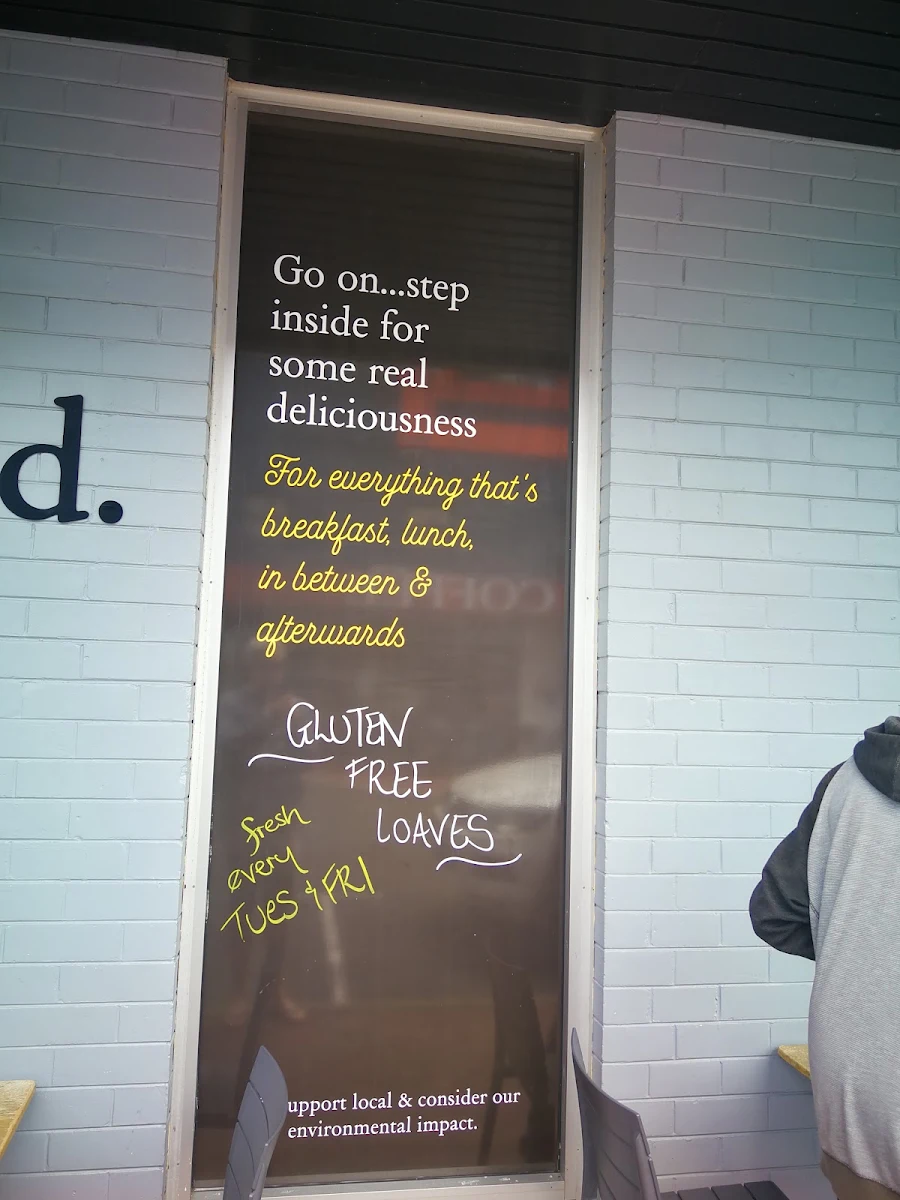 d.
Go on...step
inside for
some real
deliciousness
For everything that's
breakfast, lunch,
in between &
afterwards
GLUTEN
FREE
LOAVES
fresh
every
TUES & FRI
upport local & consider our
environmental impact.